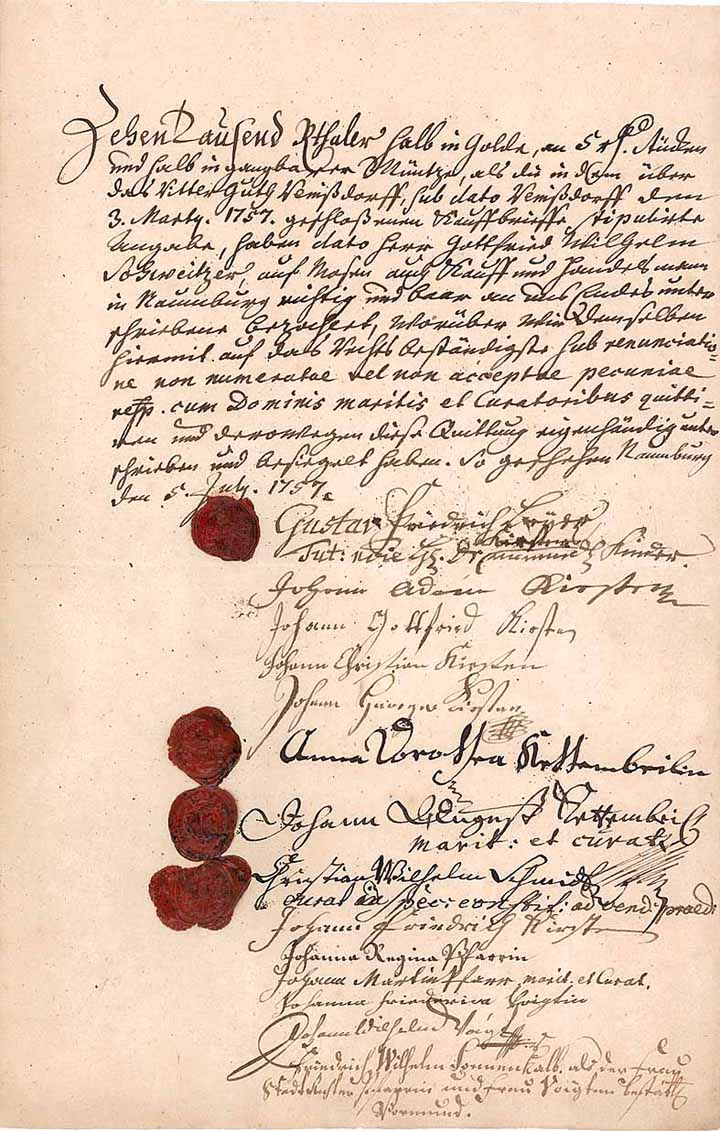 Zehen Tausend Rthaler halb in Golde, an 5 rh. Stücken
und halb in gangbarer Müntze, als die in dem über
das Ritter Guth sub dato den
3. Marty. 1757. geschloßenen Kauffbrieffe stipulirte
Angabe, haben dato Herr Gottfried Wilhelm
Schweitzer, auf Mosen auch Kauff und Handelsmann
in Naumburg richtig und baar an uns Endes unter
schriebene bezahlet, worüber wir Demselben
hiermit auf das Rechtsbeständigste sub renunciatio=
ne non numeratae vel non acceptae pecuniae
resp. cum Dominis maritis et Curatoribus quitti=
ren und derowegen diese Quittung eigenhändig unter
schrieben und besiegelt haben. So geschehen Naumburg
den 5. July. 1757.
Gustav Friedrich
Kirsten
Tut: Kinder.
Johann Adam Kirsten
Johann Gottfried Kirsten
Johann Christian Kirsten
Johann George Kirsten
Anna Dorothea Kettembeilin
Johann August Kettembeil
marit: et curat:
Christian Wilhelm Schmidt
curat in spec: constit: ad vend: praed:
Johann Friedrich Kirsten
Johanna Regina Pfarrin
Johann Martin Pfarr, marit. et Curat.
Johanna Friederica Voigtin
Johann Wilhelm Voigt
Friedrich Wilhelm Sonnenkalb, als der Frau
und Frau Voigten bestätt.
Vormund.